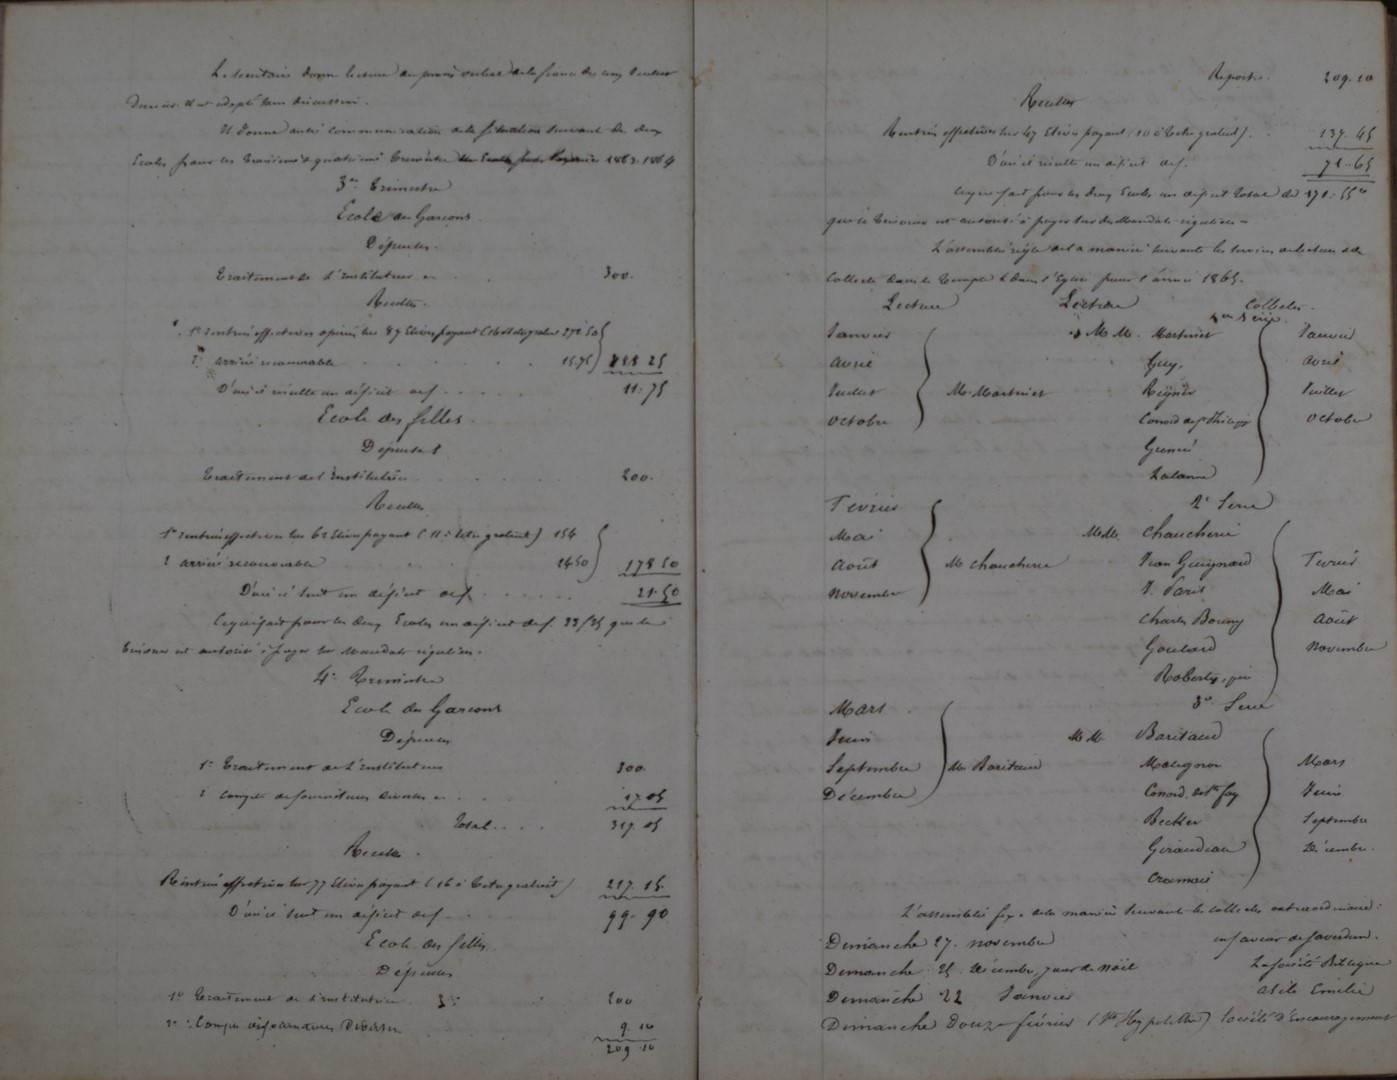 Le secrétaire donne lecture du procès verbal de la séance du cinq Juillet
dernier il est adopté sans discussion.
Il donne aussi communication de la situation suivante des deux
Ecoles pour les troisième & quatrième trimestre 1863-1864
3e Trimestre
Ecole des Garçons.
Dépenses.
Traitement de l'Instituteur 300.
Recettes.
1° rentrées effectives opérées sur 87 Elèves payant 272.50
2° arriéré recouvrable 15.75 288 25
D'où il résulte un déficit de f. 11.75
Ecole des filles.
Dépenses
Traitement de l'Institutrice 200.
Recettes
1° rentrées effectives sur 62 Elèves payant (11 à titre gratuit) 154
2° arriéré recouvrable 24.50 178 50
D'où il suit un déficit de f. 21.50
Ce qui fait pour les deux Ecoles un déficit de f. 33/25 que le
Trésorier est autorisé à payer sur Mandats réguliers.
4e Trimestre
Ecole des Garçons
Dépenses
1° Traitement de l'Instituteur 300.
2° compte de fournitures diverses 17.05
Total 317.05
Recettes.
Rentrées effectives sur 77 Elèves payant (16 à titre gratuit) 217.15
D'où il suit un déficit de f. 99.90
Ecole des filles
Dépenses
1° Traitement de l'institutrice 200
2° Compte de fournitures Diverses 9.10
209.10
Report. 209.10
Recettes
Rentrées effectives sur 47 Elèves payant (10 à titre gratuit). 137.45
D'où il résulte un déficit de f. 71.65
Ce qui fait pour les deux Ecoles un déficit total de 171.55
que le trésorier est autorisé à payer sur des Mandats réguliers.
L'assemblée règle de la manière suivante les services de lecture & de
Collecte dans le Temple & dans l'Eglise pour l'année 1865.
Lecture Lecture Collectes.
1ere Série.
Janvier MM. Martinier Janvier
Avril Guy, Avril
Juillet M. Martinier Juillet
Octobre Octobre
Lalanne
Février 2e Serie
Mai MM. Chaucherie
Août M Chaucherie Jean Guignard Février
Novembre J. Paris Mai
Charles Août
Goulard Novembre
Mars 3e Serie
Juin MM. Baritaud
Septembre M. Baritaud Mars
Décembre Juin
Becker Septembre
Giraudeau Décembre.
L'assemblée fixe de la manière suivante les collectes extraordinaires:
Dimanche 27. novembre en faveur de Saverdun.
Dimanche 25. Décembre, jour de Noël La Société Biblique
Dimanche 22 Janvier asile Emilie
Dimanche Douze février Société d'Encouragement